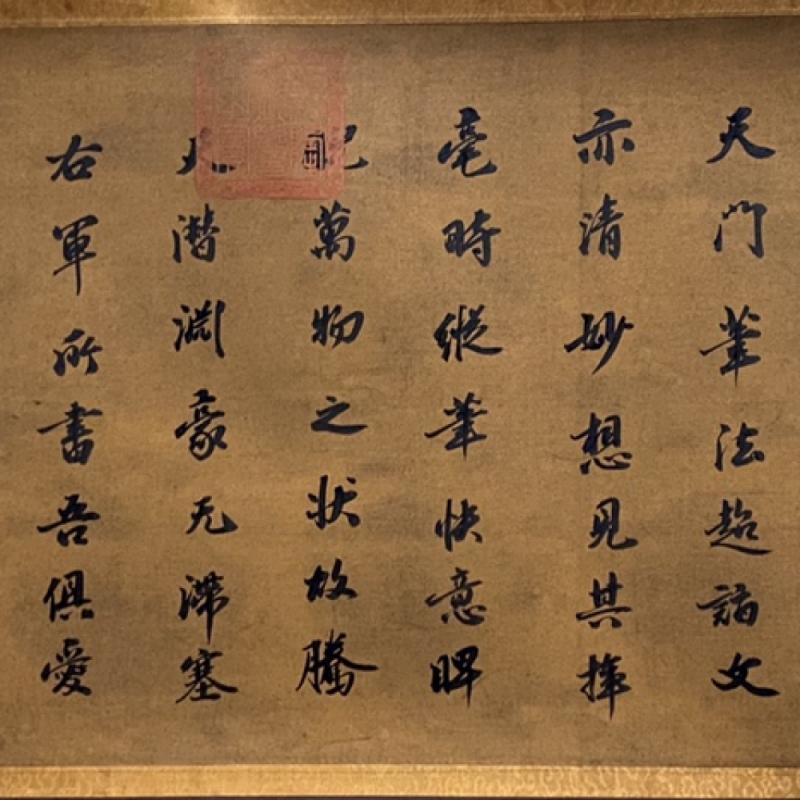 天門筆法超詣文
亦清妙想見其揮
毫時縱筆快意睥
萬物之状故騰
潛淵豪无滯塞
右軍所書吾俱愛